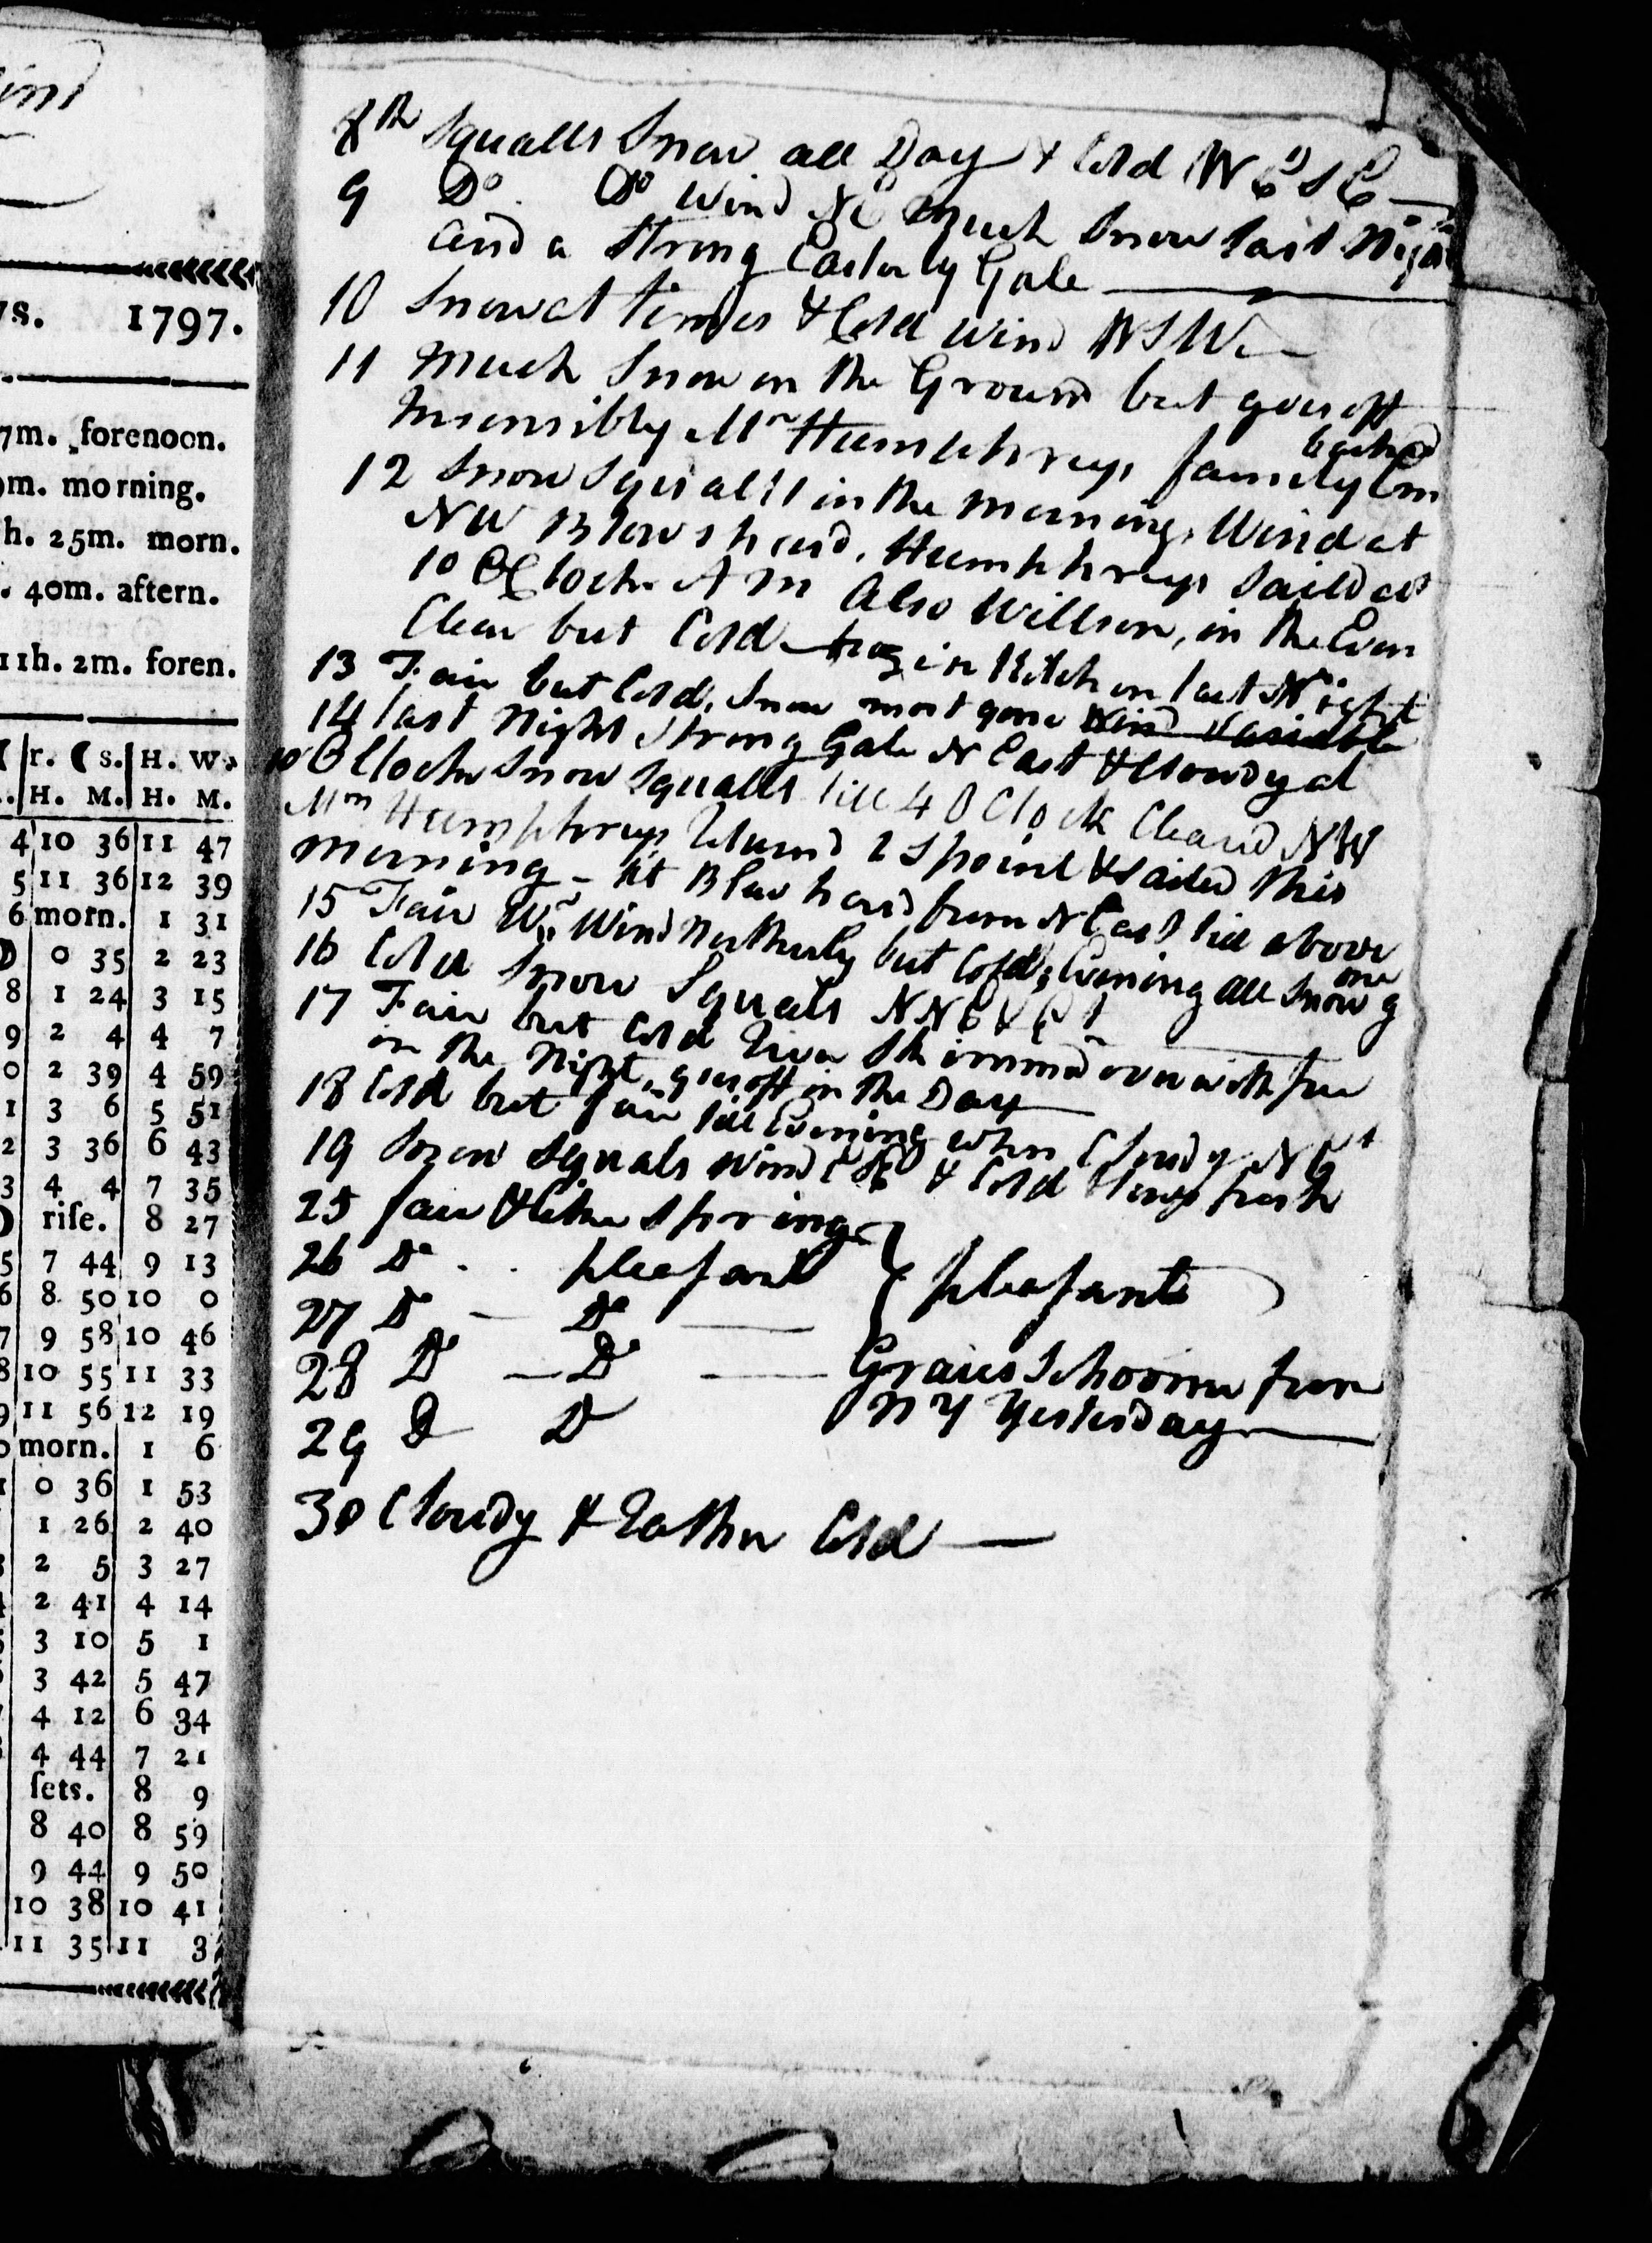 s. 1797.
7m. forenoon.
m. morning.
h. 25m. morn.
40m. aftern.
11h. 2m. foren.
r. ( s. H. W.
H. M. H. M.
4 10 36 11 47
5 11 36 12 39
6 morn. 1 31
0 35 2 23
8 1 24 3 15
9 2 4 4 7
0 2 39 4 59
1 3 6 5 51
2 3 36 6 43
3 4 4 7 35
rise. 8 27
5 7 44 9 13
6 8 50 10 0
7 9 58 10 46
8 10 55 11 33
9 11 56 12 19
0 morn. 1 6
1 0 36 1 53
1 26 2 40
2 5 3 27
2 41 4 14
3 10 5 1
3 42 5 47
4 12 6 34
4 44 7 21
sets. 8 9
8 40 8 59
9 44 9 50
10 38 10 41
11 35 11 3
8th Squalls Snow all Day & Cold
9 Do. Do Wind NE Much Snow last Night
and a Strong Easterly Gale
10 Snow at times & Cold Wind WSW
11 Much Snow on the Ground but goes off
Insensibly Mr Humphreys family Embarked
12 Snow Squalls in the Morning, Wind at
NW Blows hard, Humphreys Saild at
10 OClock AM Also Willson, in the Even
Clear but Cold in Kitchen last Night
13 Fair but Cold, Snow most gone Wind Variable
14 last Night Strong Gale N East & Cloudy at
10 OClock Snow Squalls till 4 O Clock Cleard NW
Humphreys Returnd & Sailed this
Morning - it Blew hard from N East till above
15 Fair Wr. Wind Northerly but Cold, Evening all Snow gone
16 Cold Snow Squals NNE & Et
17 Fair but Cold River Skimmd over with Ice
in the Night, goes off in the Day
18 Cold but fair till Evening when Cloudy NEt
19 Snow Squals Wind & Cold Blows fresh
25 fair & like Spring
26 Do . . pleasant } pleasant
27 Do — Do
28 Do — Do — Schooner from
29 Do Do N Y Yesterday
30 Cloudy & Rather Cold